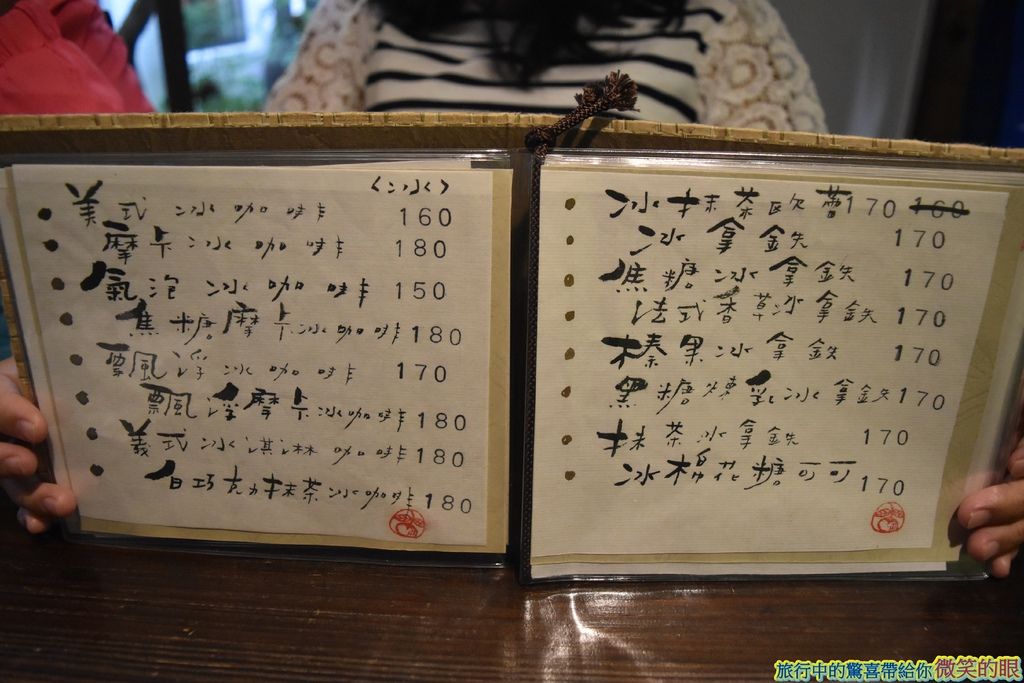 <冰>
美式冰咖啡 160
摩卡冰咖啡 180
氣泡冰咖啡 150
焦糖摩卡冰咖啡 180
飄風浮冰咖啡 170
飄風浮摩卡冰咖啡 180
義式冰淇淋咖啡 180
白巧克力抹茶冰咖啡 180
冰抹茶歐蕾 170 160
冰拿鉄 170
焦糖冰拿鉄 170
法式香草冰拿鉄 170
榛果冰拿鉄 170
黑糖煉乳冰拿鉄 170
抹茶冰拿鉄 170
冰棉花糖可可 170
旅行中的驚喜帶給你微笑的眼